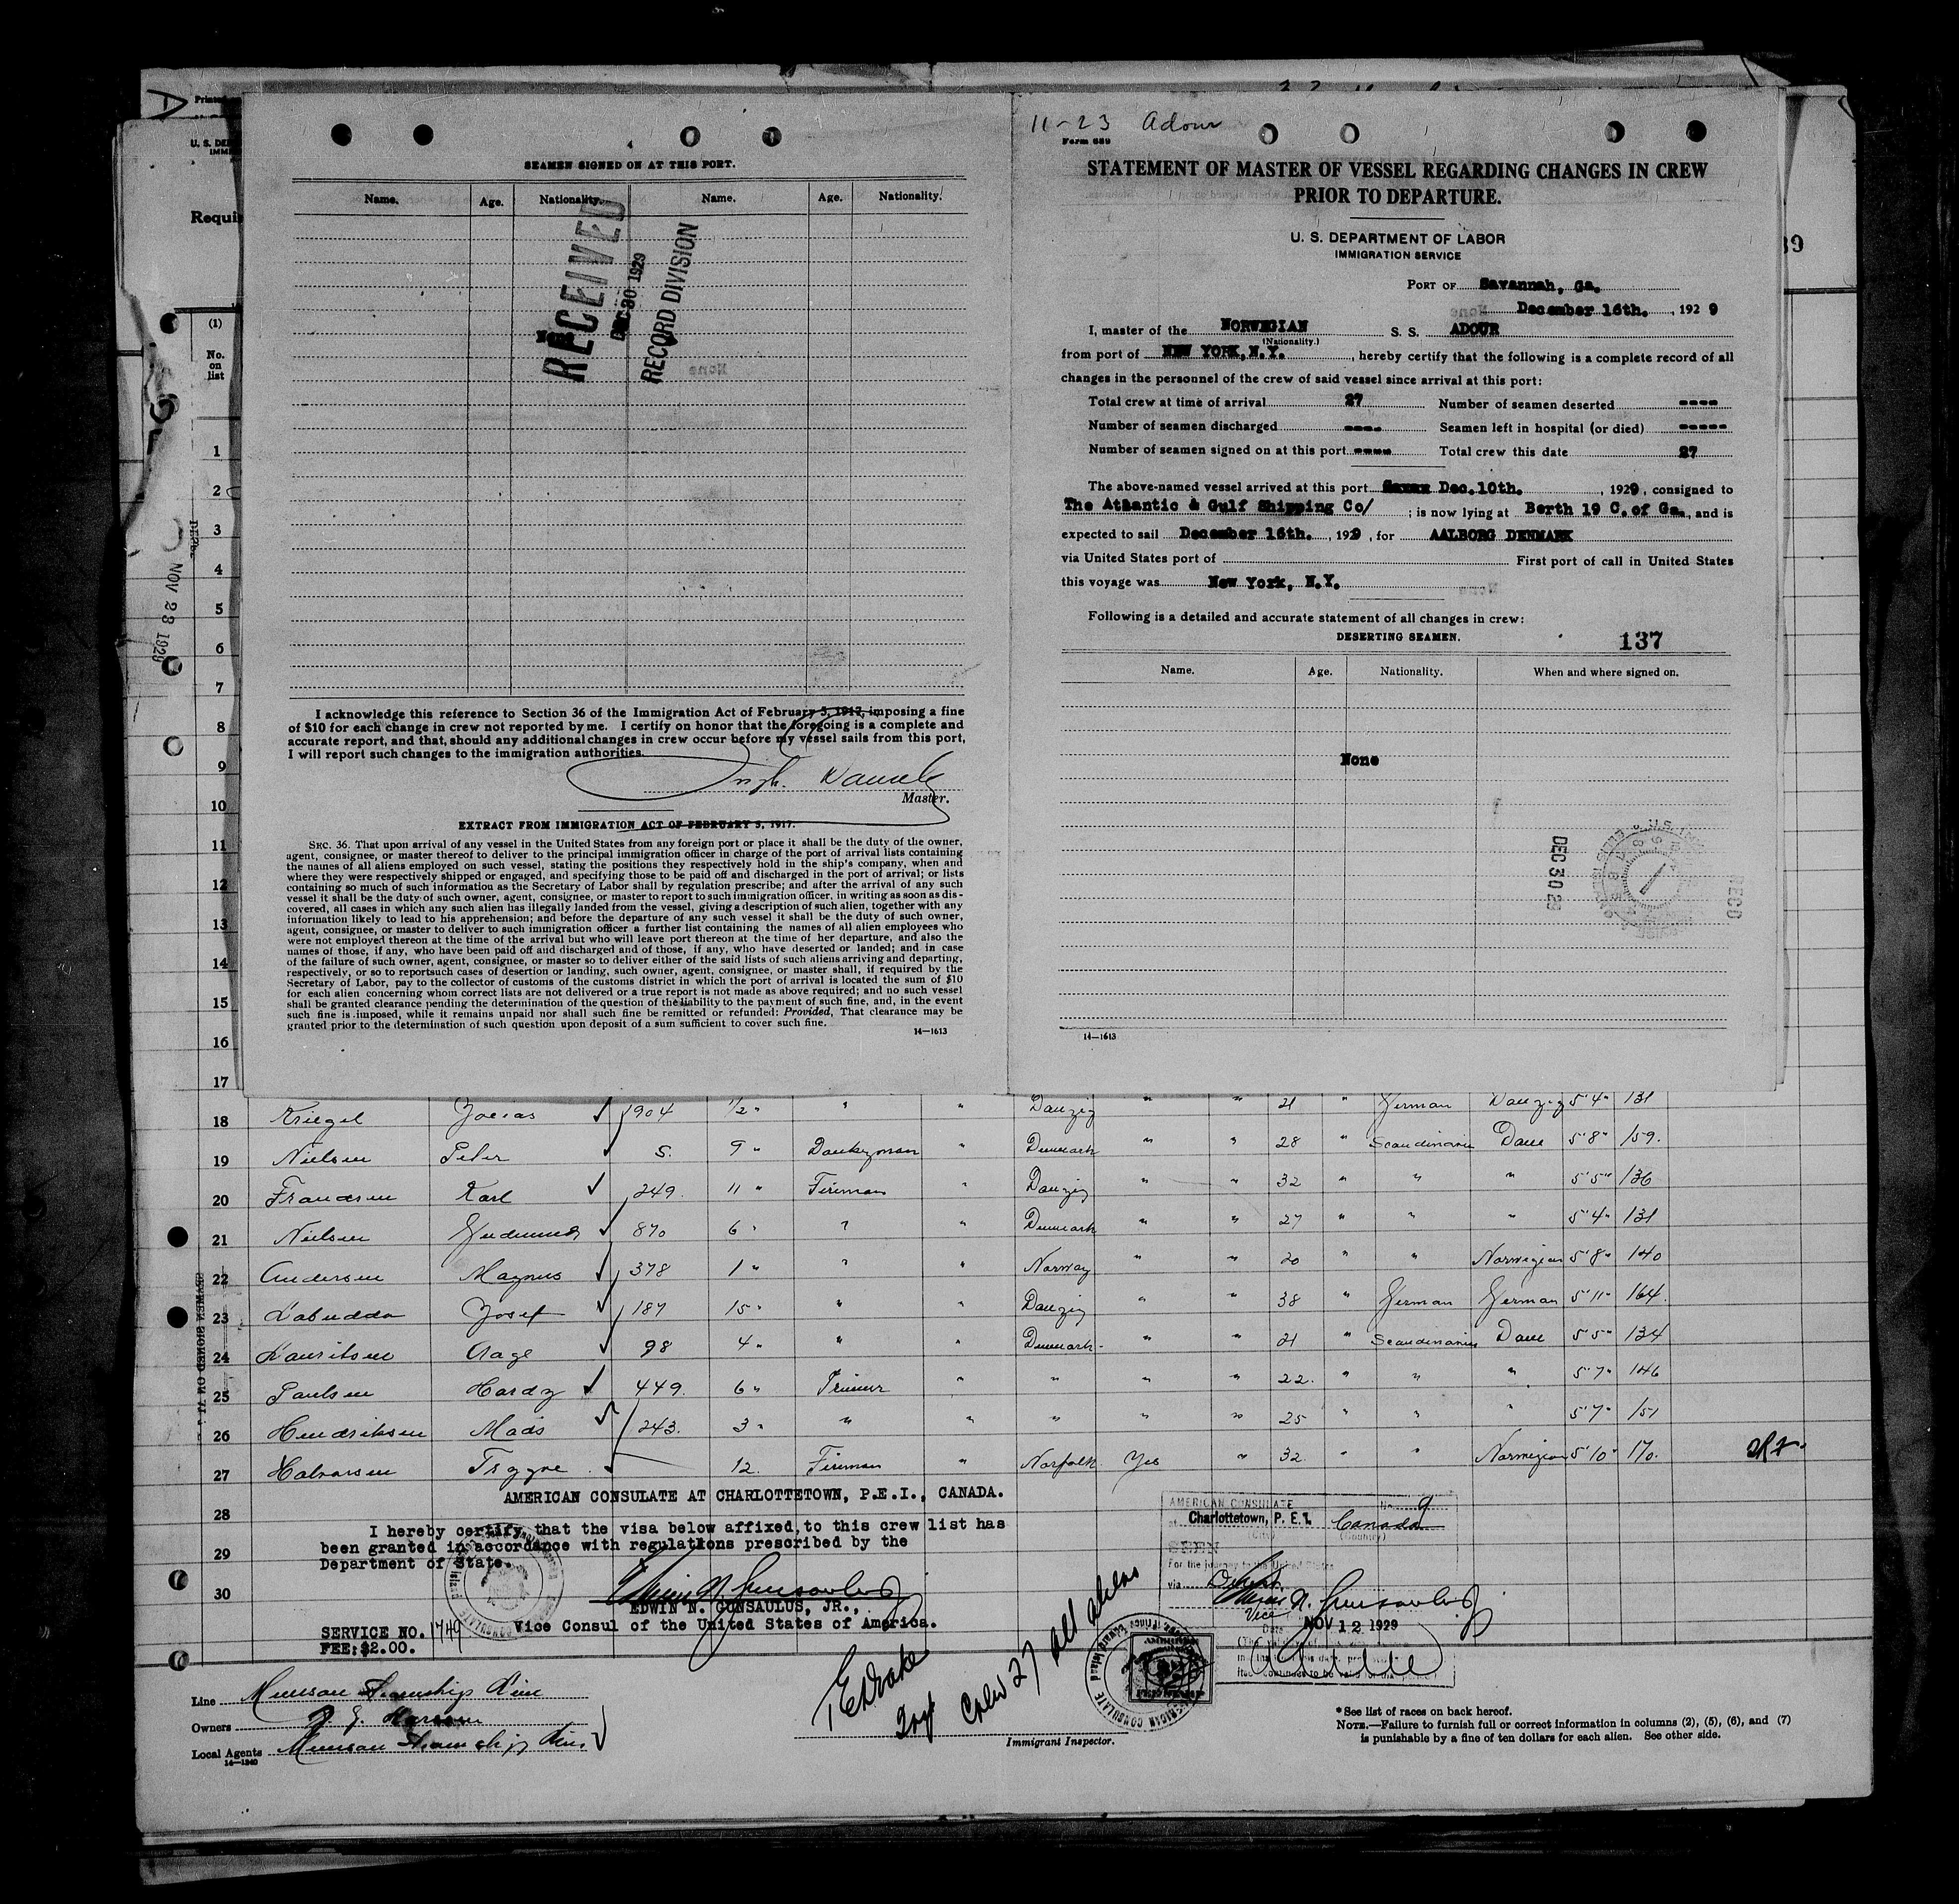 SEAMEN SIGNED ON AT THIS PORT.
Name. Age. Nationality. Name. Age. Nationality.
RECEIVED
DEC 30 1929
RECORD DIVISION
None
I acknowledge this reference to Section 36 of the Immigration Act of February 5, 1917, imposing a fine
of $10 for each change in crew not reported by me. I certify on honor that the foregoing is a complete and
accurate report, and that, should any additional changes in crew occur before my vessel sails from this port,
I will report such changes to the immigration authorities.
Master.
EXTRACT FROM IMMIGRATION ACT OF FEBRUARY 5, 1917.
SEC. 36. That upon arrival of any vessel in the United States from any foreign port or place it shall be the duty of the owner,
agent, consignee, or master thereof to deliver to the principal immigration officer in charge of the port of arrival lists containing
the names of all aliens employed on such vessel, stating the positions they respectively hold in the ship's company, when and
where they were respectively shipped or engaged, and specifying those to be paid off and discharged in the port of arrival; or lists
containing so much of such information as the Secretary of Labor shall by regulation prescribe; and after the arrival of any such
vessel it shall be the duty of such owner, agent, consignee, or master to report to such immigration officer, in writing as soon as dis-
covered, all cases in which any such alien has illegally landed from the vessel, giving a description of such alien, together with any
information likely to lead to his apprehension; and before the departure of any such vessel it shall be the duty of such owner,
agent, consignee, or master to deliver to such immigration officer a further list containing the names of all alien employees who
were not employed thereon at the time of the arrival but who will leave port thereon at the time of her departure, and also the
names of those, if any, who have been paid off and discharged and of those, if any, who have deserted or landed; and in case
of the failure of such owner, agent, consignee, or master so to deliver either of the said lists of such aliens arriving and departing,
respectively, or so to report such cases of desertion or landing, such owner, agent, consignee, or master shall, if required by the
Secretary of Labor, pay to the collector of customs of the customs district in which the port of arrival is located the sum of $10
for each alien concerning whom correct lists are not delivered or a true report is not made as above required; and no such vessel
shall be granted clearance pending the determination of the question of the liability to the payment of such fine, and, in the event
such fine is imposed, while it remains unpaid nor shall such fine be remitted or refunded: Provided, That clearance may be
granted prior to the determination of such question upon deposit of a sum sufficient to cover such fine.
14—1613
11-23 Adour
Form 689
STATEMENT OF MASTER OF VESSEL REGARDING CHANGES IN CREW
PRIOR TO DEPARTURE.
U. S. DEPARTMENT OF LABOR
IMMIGRATION SERVICE
PORT OF Savannah, Ga.
December 16th., 1929
I, master of the NORWEGIAN S. S. ADOUR
(Nationality.)
from port of NEW YORK, N.Y., hereby certify that the following is a complete record of all
changes in the personnel of the crew of said vessel since arrival at this port:
Total crew at time of arrival 27 Number of seamen deserted ----
Number of seamen discharged ---- Seamen left in hospital (or died) -----
Number of seamen signed on at this port ---- Total crew this date 27
The above-named vessel arrived at this port Dec.10th., 1929, consigned to
The Atlantic & Gulf Shipping Co/ ; is now lying at Berth 19 C. of Ga., and is
expected to sail December 16th., 1929, for AALBORG DENMARK
via United States port of First port of call in United States
this voyage was New York, N.Y.
Following is a detailed and accurate statement of all changes in crew:
DESERTING SEAMEN. 137
Name. Age. Nationality. When and where signed on.
None
DEC 30 29
RECD
14—1613
Requi
(1)
No. on list
NOV 23 1929
1
2
3
4
5
6
7
8
9
10
11
12
13
14
15
16
17
18 Kriegel 1904 1/2 " " " Danzig " " 21 " German Danzig 5'4" 131
19 Nielsen Peter S. 9 " Donkeyman " Denmark " " 28 " Scandinavian Dane 5'8" 159.
20 Frandsen Karl 249. 11 " Fireman " Danzig " " 32 " " " 5'5" 136
21 Nielsen Gudmund 870 6 " " " Denmark " " 27 " " " 5'4" 131
22 Andersen Magnus 378 1 " " " Norway " " 20 " " Norwegian 5'8" 140
23 Labudda Josef 187 15 " " " Danzig " " 38 " German German 5'11" 164.
24 Lauritsen Aage 98 4 " " " Denmark " " 21 " Scandinavian Dane 5'5" 134
25 Paulsen Hardy 449. 6 " Trimmer " " " " 22. " " " 5'7" 146
26 Hendriksen Mads 243. 3 " " " " " " 25 " " " 5'7" 151
27 Halvorsen Trygve 12. Fireman " Norfolk Yes " 32. " " Norwegian 5'10" 170.
28
29
30
AMERICAN CONSULATE AT CHARLOTTETOWN, P.E.I., CANADA.
I hereby certify that the visa below affixed to this crew list has
been granted in accordance with regulations prescribed by the
Department of State.
EDWIN N. GUNSAULUS, JR.,
Vice Consul of the United States of America.
SERVICE NO. 1749
FEE: $2.00.
AMERICAN CONSULATE No. 9
Charlottetown, P. E. I. Canada
(City) (Country)
SEEN
For the journey to the United States
via Direct
Vice
Date NOV 12 1929
Crew 27 all aliens
Line Munson Steamship Line
Owners
Local Agents Munson Steamship Line
14—1240
Immigrant Inspector.
*See list of races on back hereof.
NOTE.—Failure to furnish full or correct information in columns (2), (5), (6), and (7)
is punishable by a fine of ten dollars for each alien. See other side.